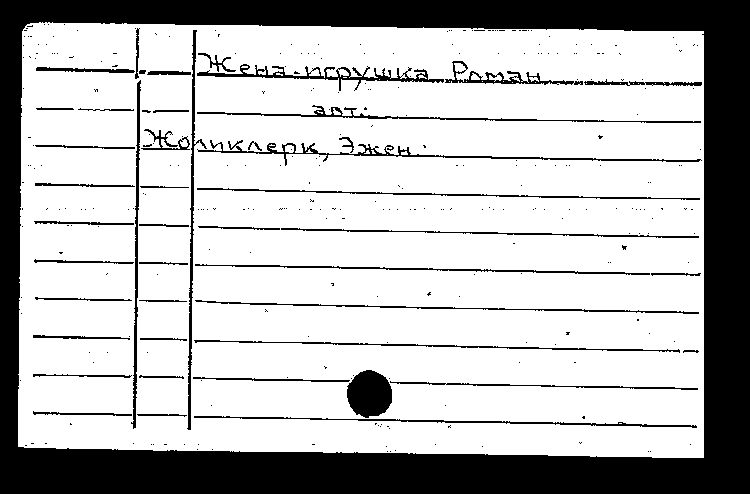 Жена-игрушка Роман
авт.:
Жоликлерк, Эжен.